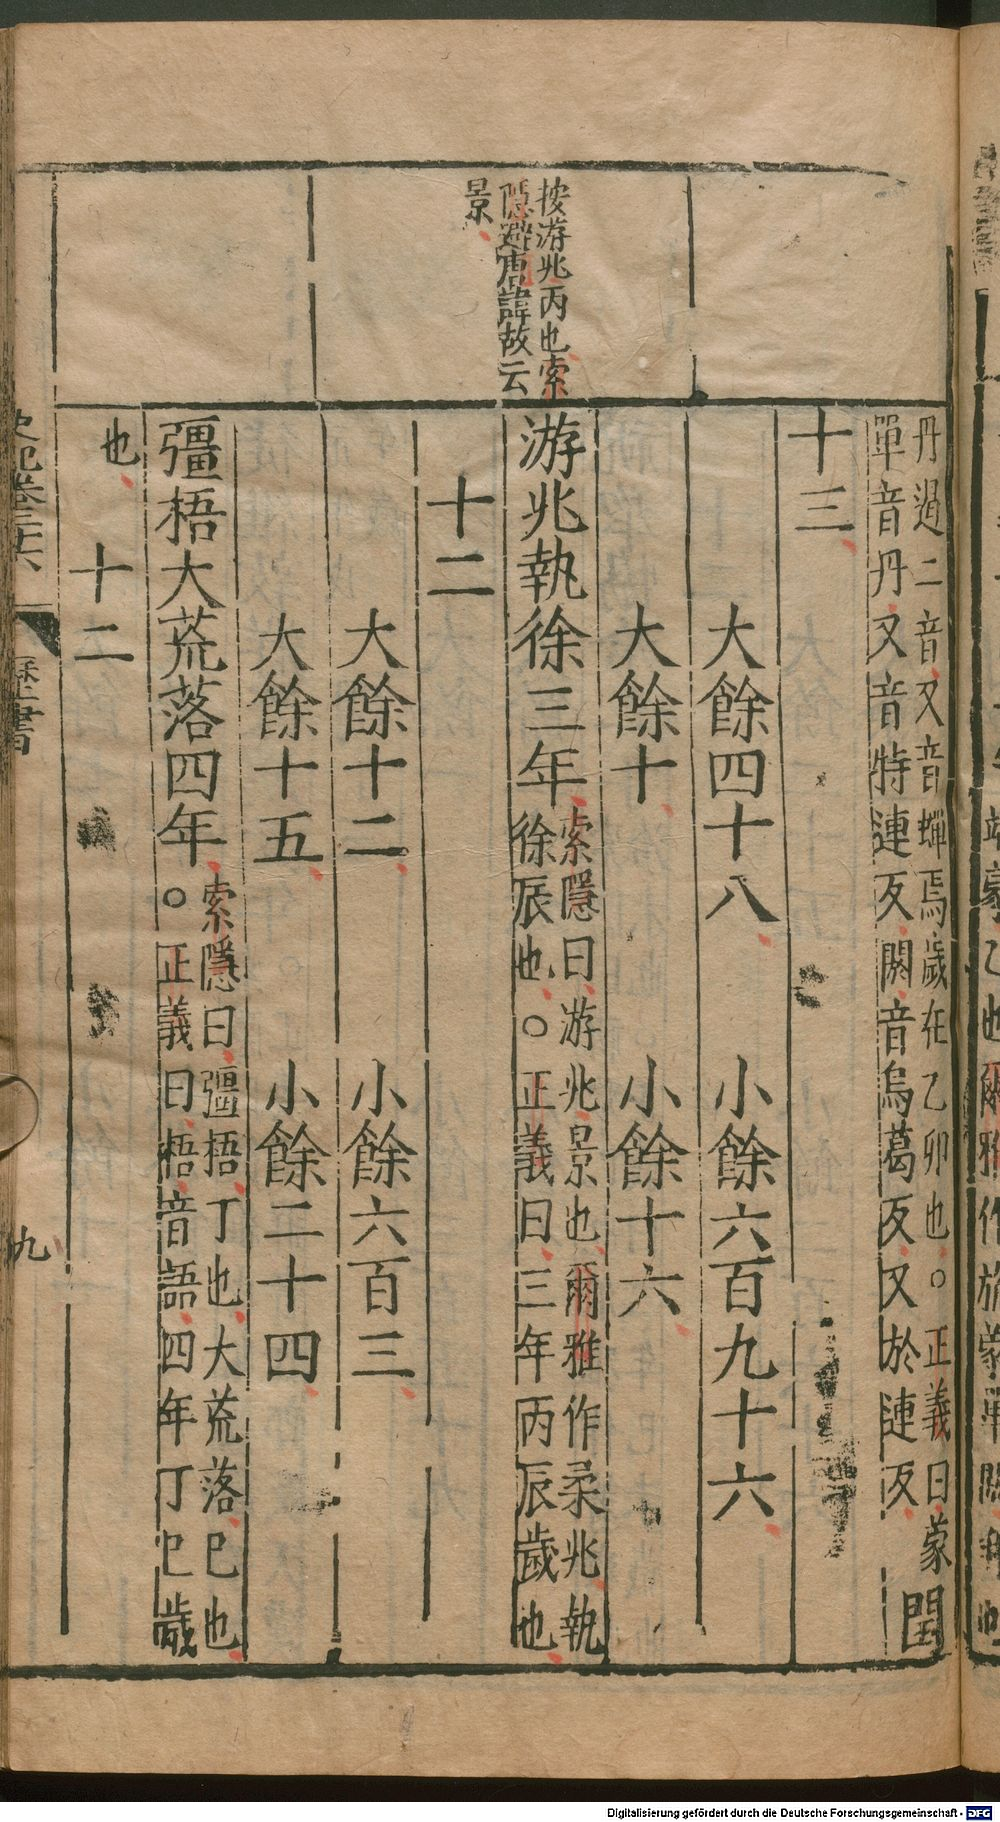 按游兆丙也索
隱避唐諱故云
景
丹遏二音又音蟬焉歲在乙卯也○正義曰蒙
單音丹又音特連反閼音烏葛反又於連反
閏
十三
大餘四十八 小餘六百九十六
大餘十 小餘十六
游兆執徐三年
索隱曰游兆景也爾雅作柔兆執
徐辰也○正義曰三年丙辰歲也
十二
大餘十二 小餘六百三
大餘十五 小餘二十四
彊梧大荒落四年
索隱曰彊梧丁也大荒落巳也
○正義曰梧音語四年丁巳歲
也
十二
史記卷二十六 歷書 九
Digitalisierung gefördert durch die Deutsche Forschungsgemeinschaft - DFG